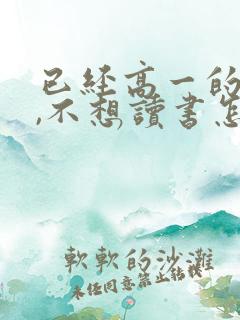 已经高一的
,不想讀書怎
軟軟的沙灘
未经同意禁止转载